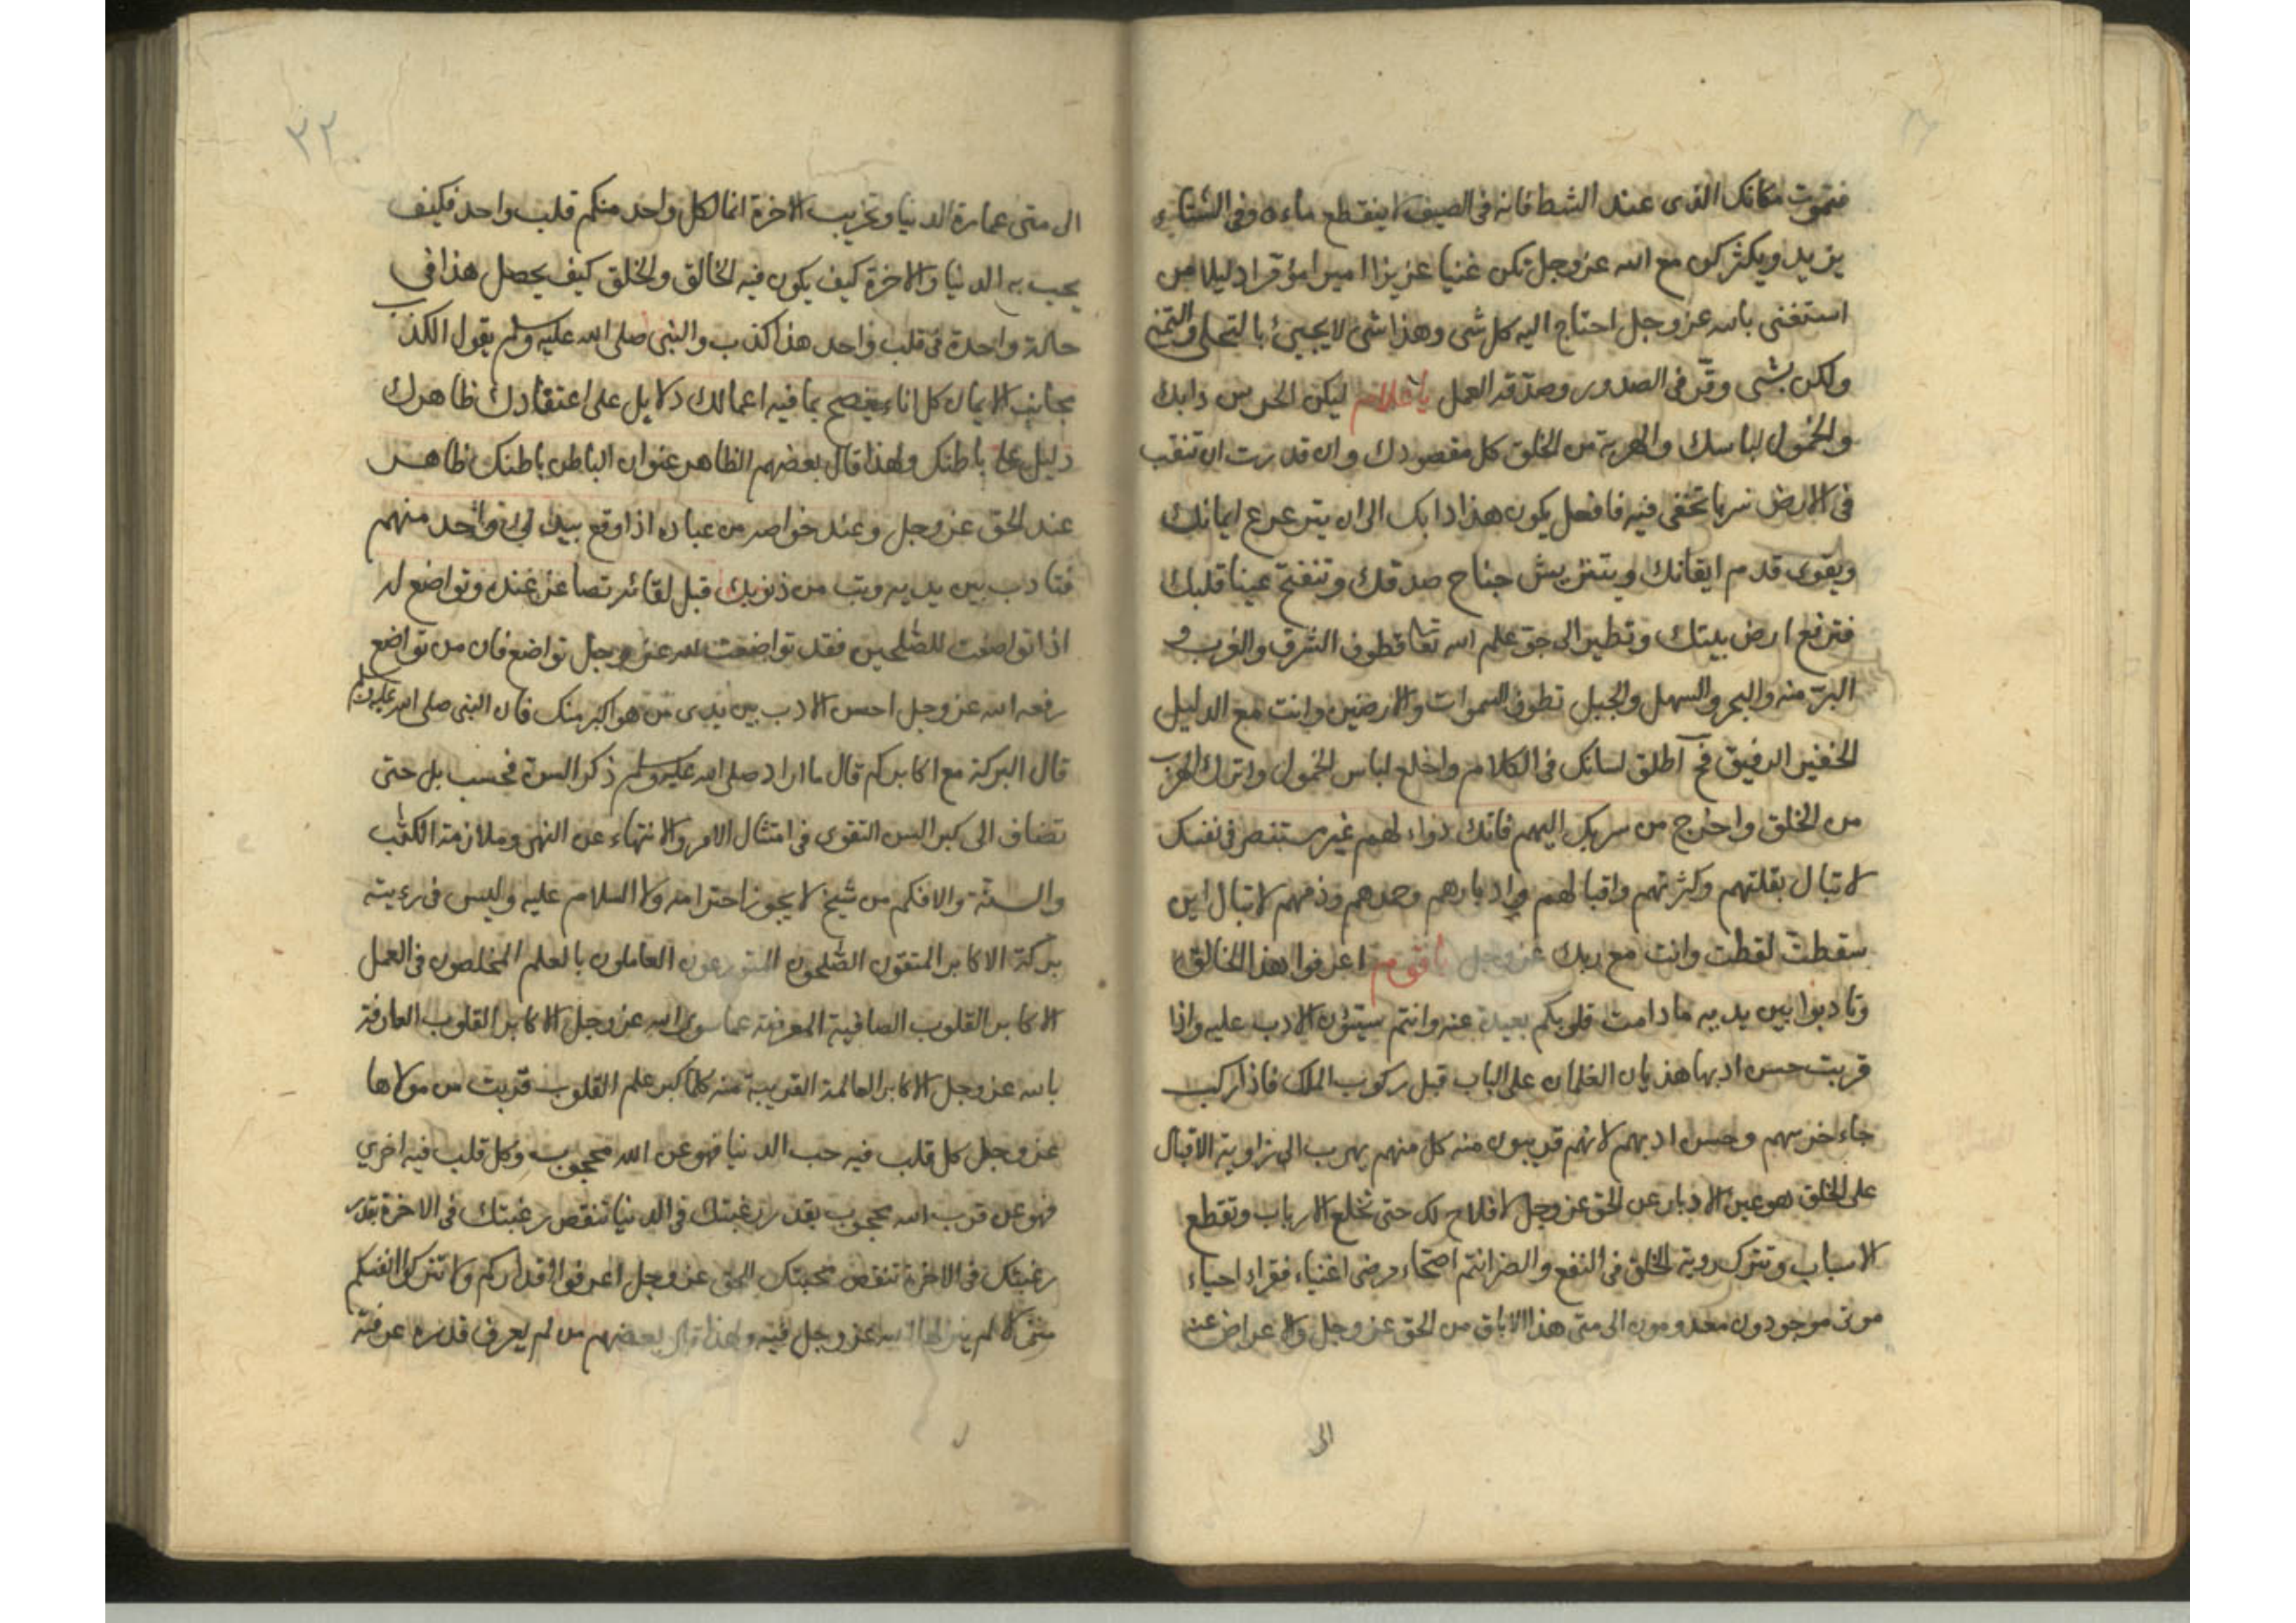 فتموت مكانك الذى عند الشط فانه فى الصيف لا ينقطع ماءه وفى الشتاء
يزيد ويكثر كن مع الله عز وجل تكن غنيا عزيزا اميرا مؤمرا دليلا من
استغنى بالله عز وجل احتاج اليه كل شى وهذا شى لا يجيئ بالتحلى والتمنى
ولكن بشى وقر فى الصدور وصدقه العمل يا غلام ليكن الخرس دابك
والخمول لباسك والهرب من الخلق كل مقصودك وان قدرت ان تنقب
فى الارض سربا تختفى فيه فافعل يكون هذا دابك الى ان يترعرع ايمانك
ويقوى قدم ايقانك ويتريش جناح صدقك وتنفتح عينا قلبك
فترتفع ارض بيتك وتطير الى جو علم الله تعا فتطوف الشرق والغرب و
البر منه والبحر والسهل والجبل تطوف السموات والارضين وانت مع الدليل
الخفير الرفيق فح اطلق لسانك فى الكلام واخلع لباس الخمول واترك الهرب
من الخلق واخرج من سربك اليهم فانك دواء لهم غير مستضر فى نفسك
لا تبال بقلتهم وكثرتهم واقبالهم وادبارهم وحمدهم وذمهم لا تبال اين
سقطت لقطت وانت مع ربك عز وجل يا قوم اعرفوا هذا الخالق
وتادبوا بين يديه ما دامت قلوبكم بعيدة عنه وانتم سيئون الادب عليه واذا
قربت حسن ادبها هذيان الغلمان على الباب قبل ركوب الملك فاذا ركب
جاء خرسهم وحسن ادبهم لانهم قريبون منه كل منهم يهرب الى زاوية الاقبال
على الخلق هو عين الادبار عن الحق عز وجل لا فلاح لك حتى تخلع الارباب وتقطع
الاسباب وتترك روية الخلق فى النفع والضر انتم اصحاء مرضى اغنياء فقراء احياء
موتى موجودون معدومون الى متى هذا الاباق من الحق عز وجل والاعراض عنه
الى
٣٢
الى متى عمارة الدنيا وتخريب الاخرة انما لكل واحد منكم قلب واحد فكيف
يحب به الدنيا والاخرة كيف يكون فيه الخالق والخلق كيف يحصل هذا فى
حالة واحدة فى قلب واحد هذا كذب والنبى صلى الله عليه وسلم يقول الكذب
مجانب الايمان كل اناء ينضح بما فيه اعمالك دلايل على اعتقادك ظاهرك
دليل على باطنك ولهذا قال بعضهم الظاهر عنوان الباطن باطنك ظاهر
عند الحق عز وجل وعند خواصه من عباده اذا وقع بيدك واحد منهم
فتادب بين يديه وتب من ذنوبك قبل لقائه تصاغر عنده وتواضع له
اذا تواضعت للصلحين فقد تواضعت لله عز وجل تواضع فان من تواضع
رفعه الله عز وجل احسن الادب بين يدى من هو اكبر منك فان النبى صلى الله عليه وسلم
قال البركة مع اكابركم قال ما اراد صلى الله عليه وسلم ذكر السن فحسب بل حتى
تضاف الى كبر السن التقوى فى امتثال الامر والانتهاء عن النهى وملازمة الكتاب
والسنة والا فكم من شيخ لا يجوز احترامه ولا السلام عليه وليس فى رويته
بركة الاكابر المتقون الصلحون المتورعون العاملون بالعلم المخلصون فى العمل
الاكابر القلوب الصافية المعرضة عما سوى الله عز وجل الاكابر القلوب العارفة
بالله عز وجل الاكابر العالمة القريبة منه كلما كبر علم القلوب قربت من مولاها
عز وجل كل قلب فيه حب الدنيا فهو عن الله محجوب وكل قلب فيه اخري
فهو عن قرب الله محجوب بقدر رغبتك فى الدنيا تنقص رغبتك فى الاخرة بقدر
رغبتك فى الاخرة تنقص محبتك للحق عز وجل اعرفوا اقداركم ولا تتركوا انفسكم
منزلا لم ينزلها الله عز وجل فيه ولهذا قال بعضهم من لم يعرف قدره عرفته